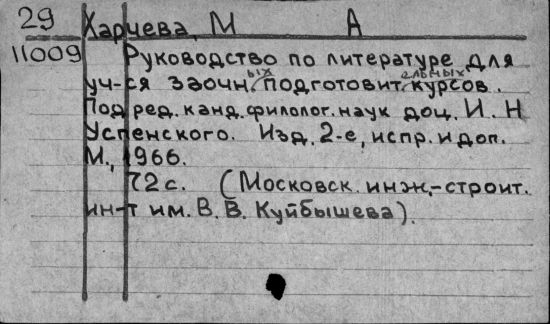 29 Харчева, М А
11009 Руководство по литературе для
уч-ся заочн.ых подготовит.ельных курсов.
Под ред. канд. филолог. наук доц. И. Н
Успенского. Изд. 2-е, испр. и доп.
М., 1966.
72 с. (Московск. инж.-строит.
ин-т им. В. В. Куйбышева).